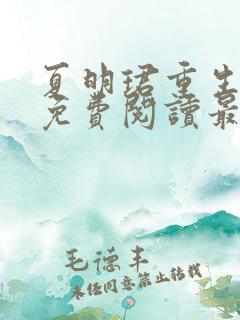 夏明珺重生
免費閱讀最
毛德丰
未经同意禁止转载